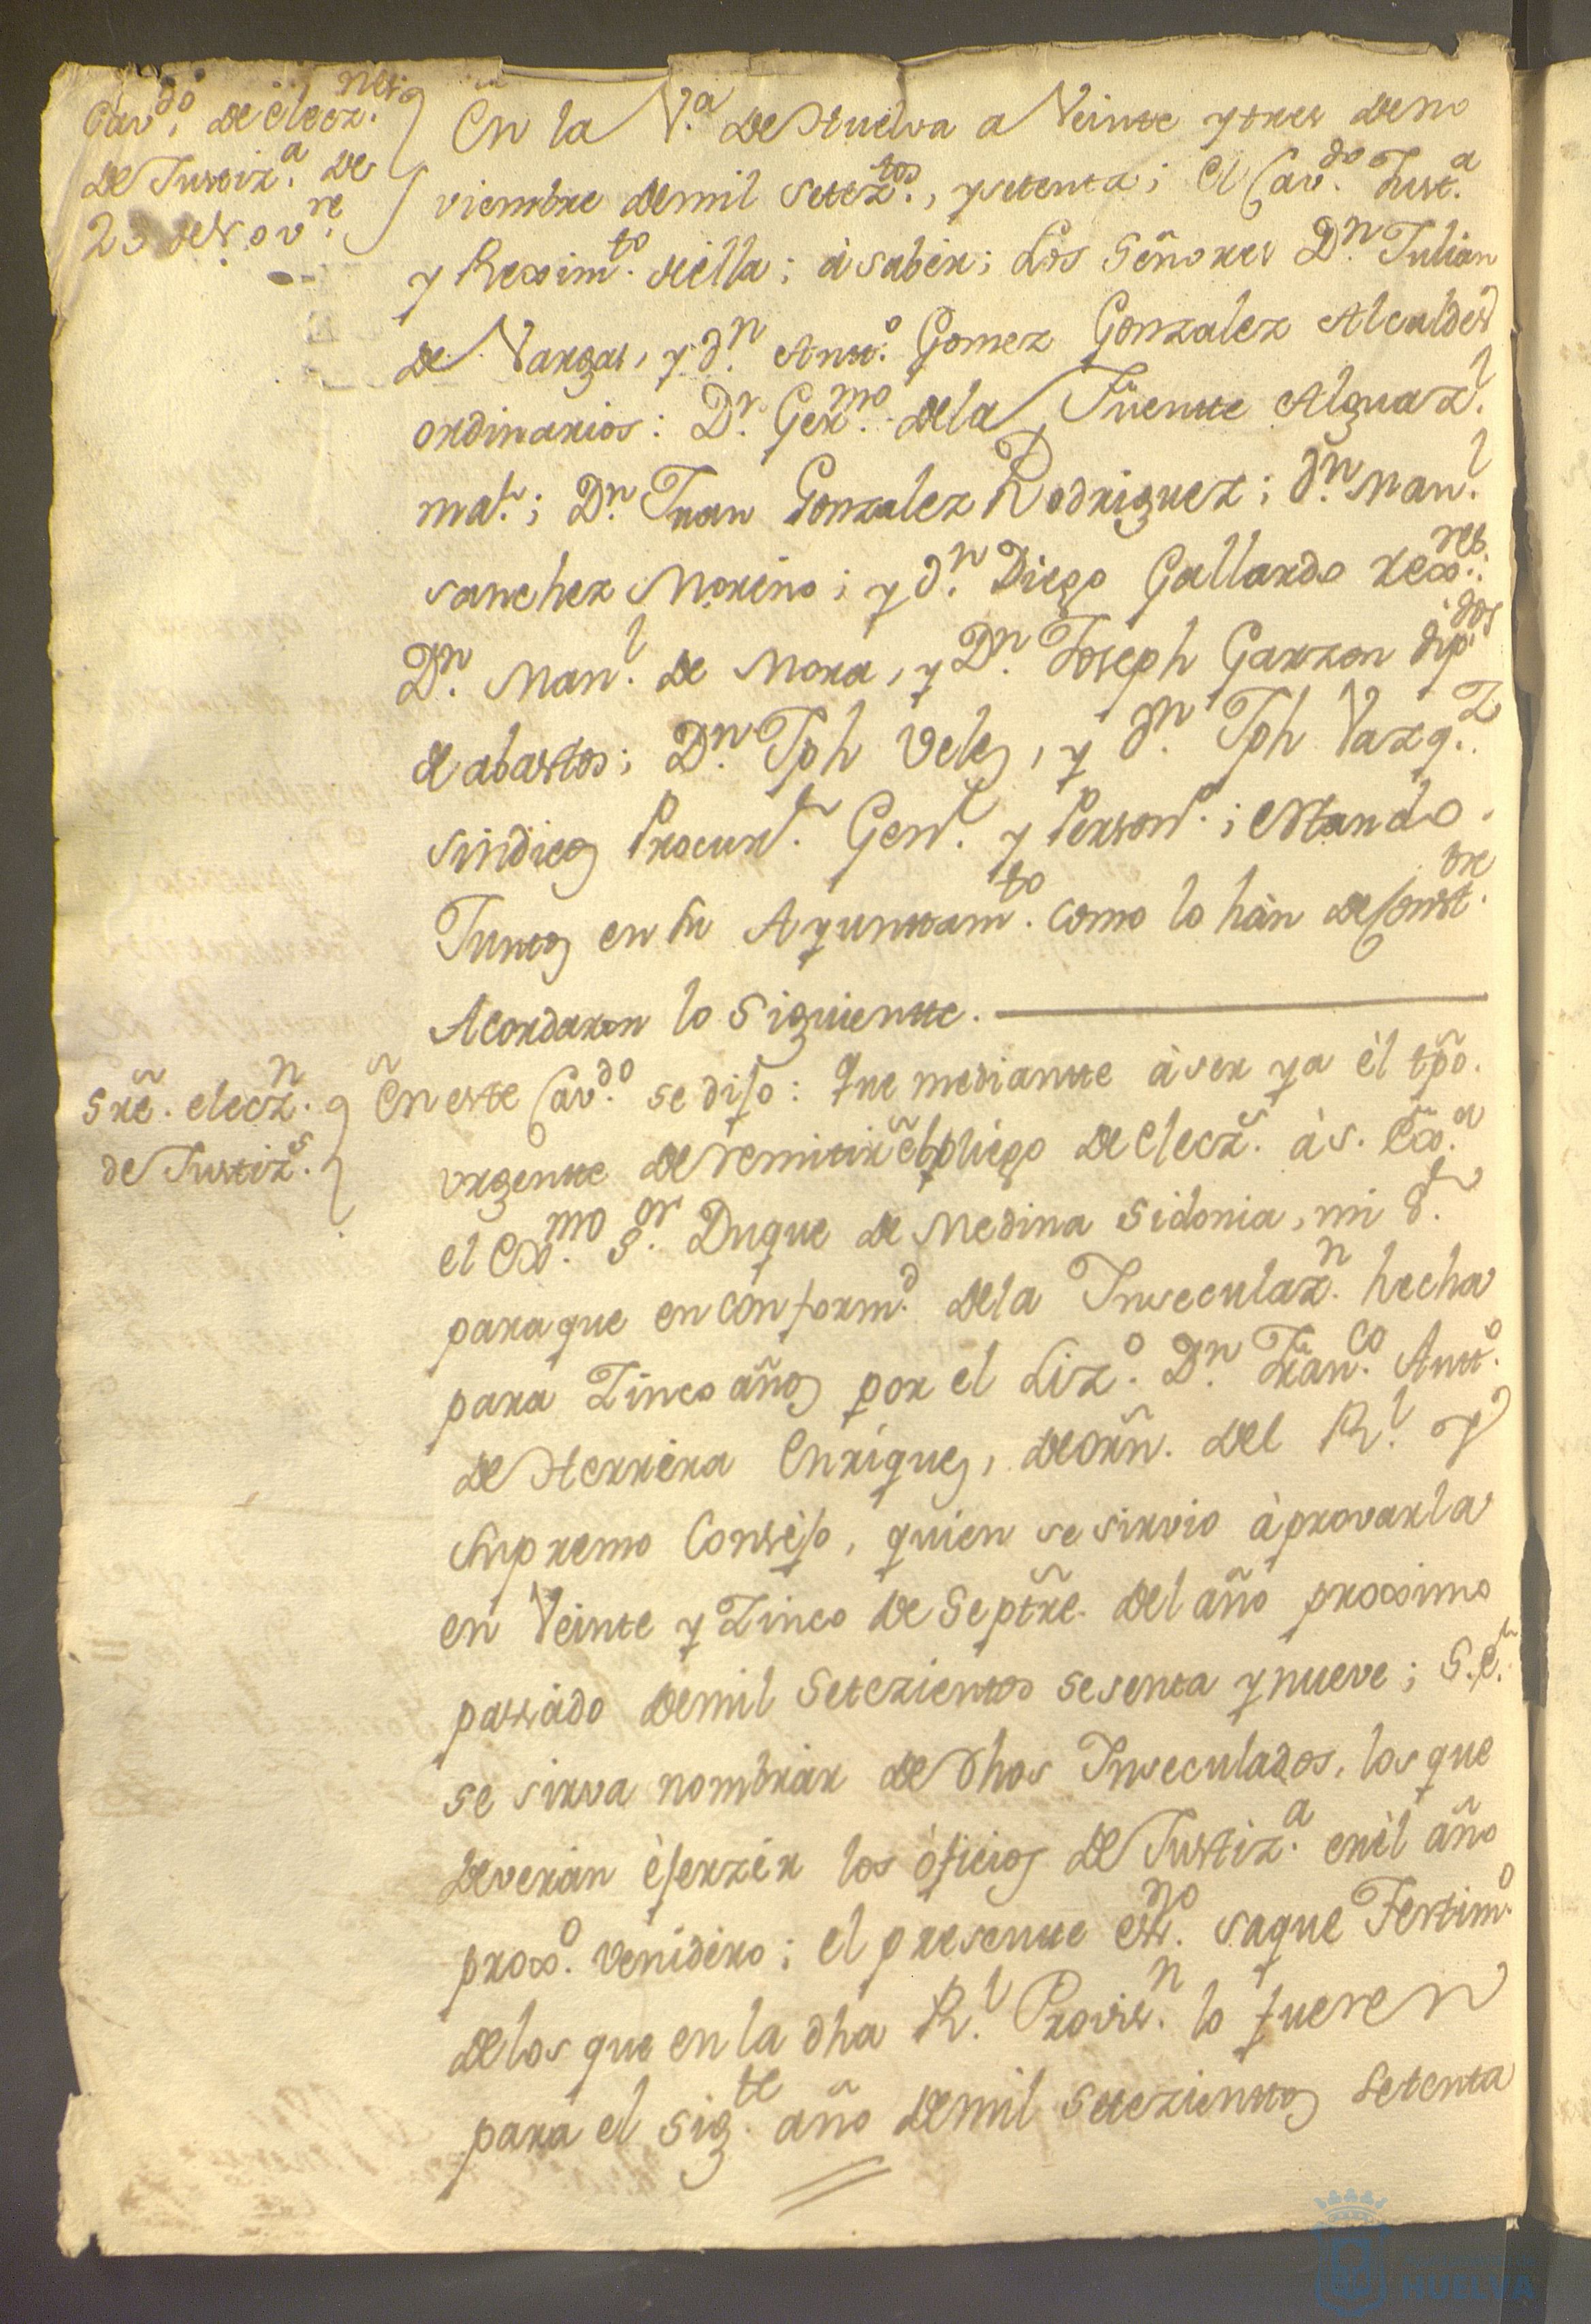 Cav.do de elecz.nes
de Justiz.a de
23 de Nov.re
En la V.a de Huelva a Veinte y tres de no
viembre de mil setez.tos, y setenta; el Cav.do Just.a
y Reximto. de ella; à saber; Los Señores Dn. Julian
de Vargas, y dn. Antt.o Gomez Gonzalez Alcaldes
ordinarios: Dn. Germo. de la Fuente Alguaz.l
mar.; Dn. Juan Gonzalez Rodriguez; dn. Man.l
Sanchez Moreno; y dn. Diego Gallardo rex.res:
Dn. Man.l de Mora, y Dn. Joseph Garzon dip.dos
de abastos; Dn. Jph Velez, y dn. Jph Vazq.z
sindicos Procur.r Gen.l y Person.o; estando
Juntos en su Ayunttam.to como lo hàn de Constt.bre
Acordaron lo Siguientte.
Sre. elecz.n
de Justiz.s
En este Cav.do se dijo: Que mediantte à ser ya èl tpõ.
urgentte de remitir el pliego de Elecz.s à S. Exã.
el Ex.mo S.or Duque de Medina Sidonia, mi S.r
para que en conform.d de la Inseculaz.n hecha
para Zinco años por el Liz.do Dn. Fran.co Antt.o
de Herrera Enriquez, de orñ. del R.l y
Supremo Consejo, quien se sirvio àprovarla
en Veinte y Zinco de Septrẽ. del año proximo
passado de mil Setezientos sesenta y nueve; S.E.
se sirva nombrar de dhos Inseculados, los que
deveràn èjerzèr los òficios de Justiz.a en èl año
prox.o venidèro; el presentte ess.no saque Testim.o
de los que en la dha R.l Provis.n lo fueren
para el sig.te año de mil setezienttos setenta